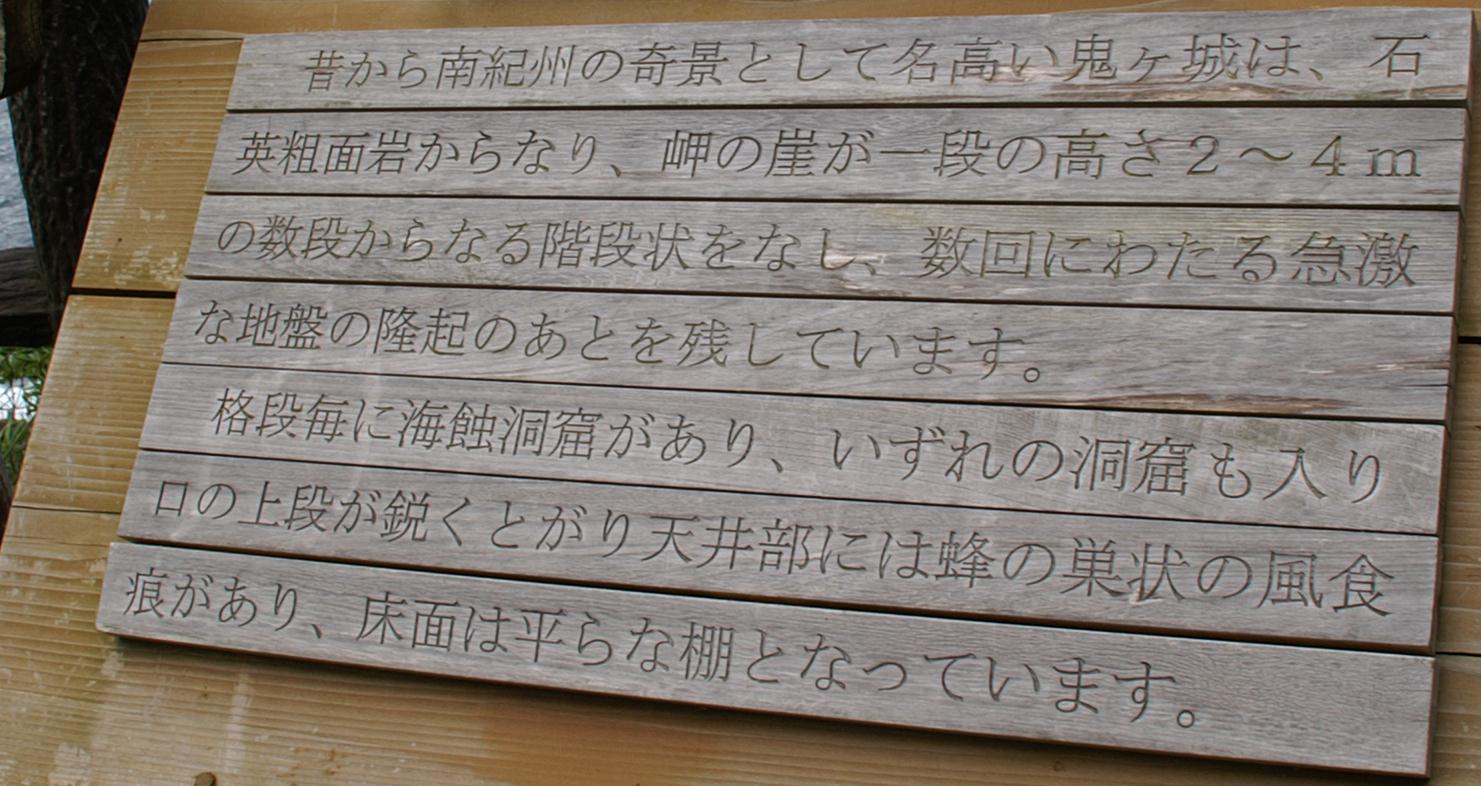 昔から南紀州の奇景として名高い鬼ヶ城は、石
英粗面岩からなり、岬の崖が一段の高さ２～４ｍ
の数段からなる階段状をなし、数回にわたる急激
な地盤の隆起のあとを残しています。
格段毎に海蝕洞窟があり、いずれの洞窟も入り
口の上段が鋭くとがり天井部には蜂の巣状の風食
痕があり、床面は平らな棚となっています。